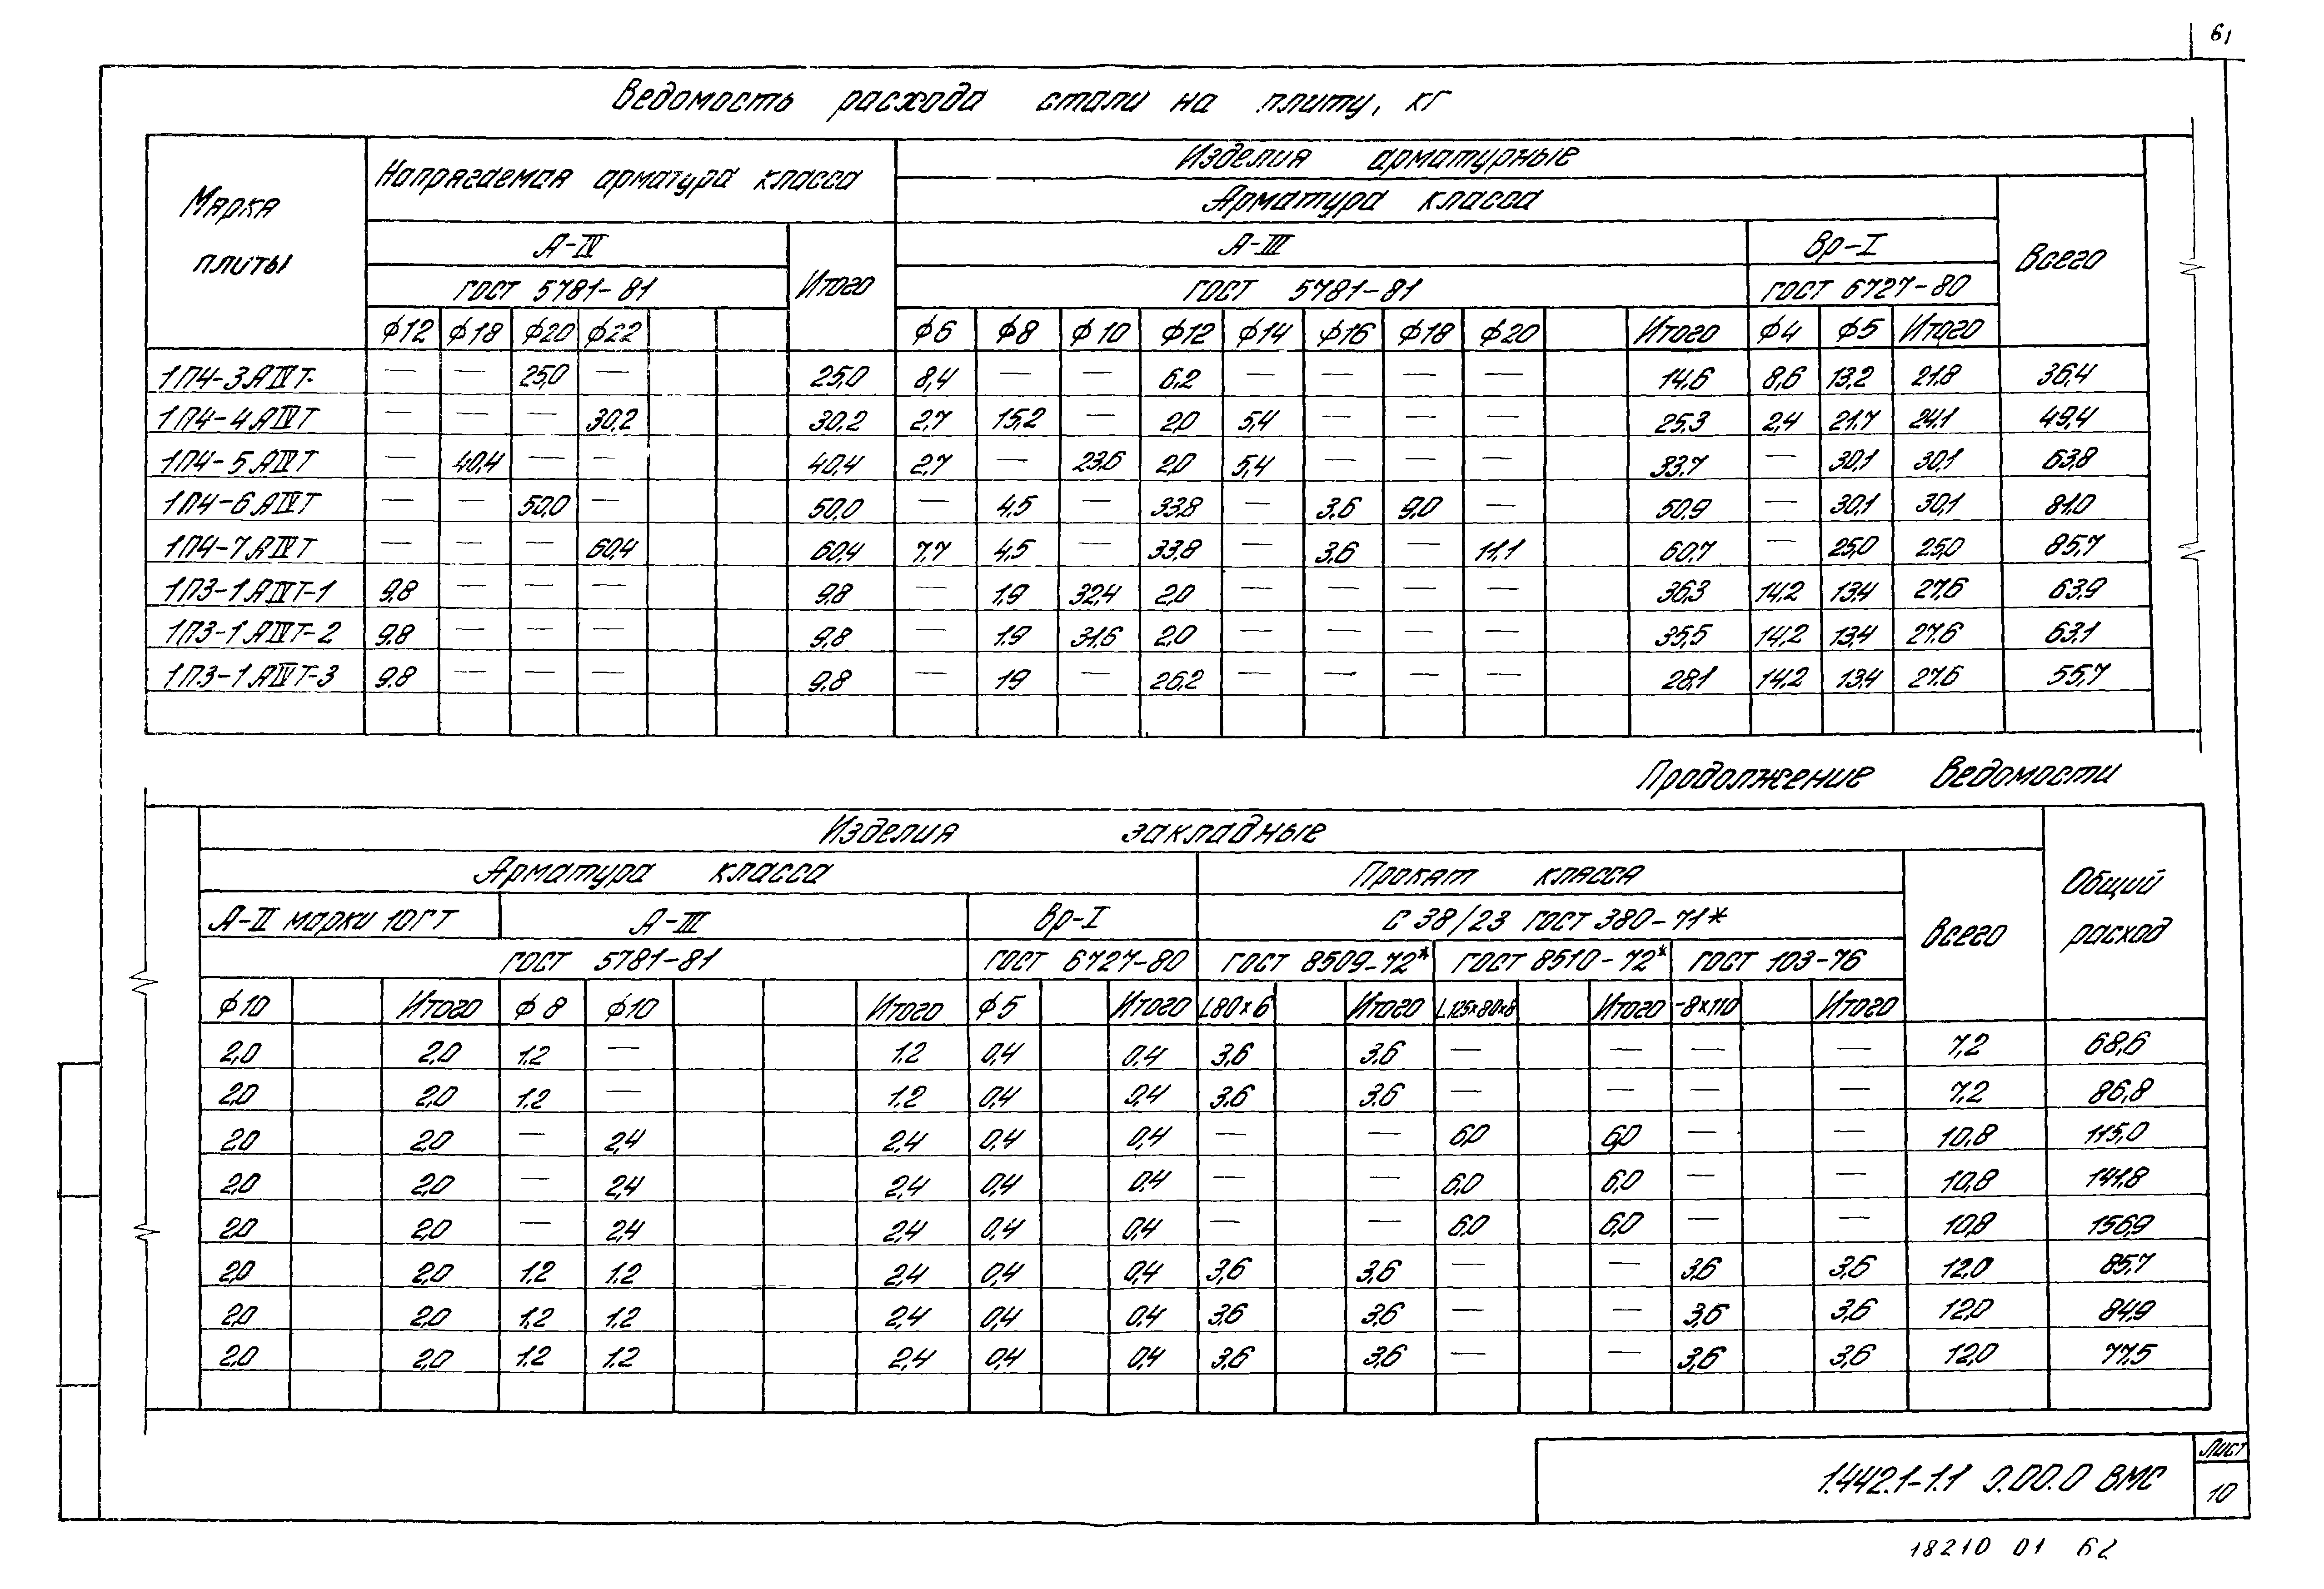 61
Ведомость расхода стали на плиту, кг
Марка плиты
Напрягаемая арматура класса
Изделия арматурные
Арматура класса
А-IV
Итого
А-III
Вр-I
Всего
ГОСТ 5781-81
ГОСТ 5781-81
ГОСТ 6727-80
ф12 ф18 ф20 ф22 ф6 ф8 ф10 ф12 ф14 ф16 ф18 ф20 Итого ф4 ф5 Итого
1П4-3АIVТ — — 25,0 — 25,0 8,4 — — 6,2 — — — — 14,6 8,6 13,2 21.8 36,4
1П4-4АIVТ — — — 30,2 30,2 2,7 15,2 — 2,0 5,4 — — — 25,3 2,4 21.7 24.1 49,4
1П4-5АIVТ — 40,4 — — 40,4 2,7 — 23,6 2,0 5,4 — — — 33.7 — 30,1 30,1 63,8
1П4-6АIVТ — — 50,0 — 50,0 — 4,5 — 33,8 — 3,6 9,0 — 50,9 — 30,1 30,1 81,0
1П4-7АIVТ — — — 60,4 60,4 7,7 4,5 — 33,8 — 3,6 — 11,1 60,7 — 25,0 25,0 85,7
1П3-1АIVТ-1 9,8 — — — 9,8 — 1,9 32,4 2,0 — — — — 36,3 14,2 13,4 27,6 63,9
1П3-1АIVТ-2 9,8 — — — 9,8 — 1,9 31,6 2,0 — — — — 35,5 14,2 13,4 27,6 63,1
1П3-1АIVТ-3 9,8 — — — 9,8 — 1,9 — 26,2 — — — — 28,1 14,2 13,4 27,6 55,7
Продолжение ведомости
Изделия закладные
Общий расход
Арматура класса
Прокат класса
Всего
А-II марки 10ГТ
А-III
Вр-I
С 38/23 ГОСТ 380-71*
ГОСТ 5781-81
ГОСТ 6727-80
ГОСТ 8509-72*
ГОСТ 8510-72*
ГОСТ 103-76
ф10 Итого ф8 ф10 Итого ф5 Итого L80×6 Итого L125×80×8 Итого -8×110 Итого
2,0 2,0 1.2 — 1.2 0,4 0,4 3,6 3,6 — — — — 7,2 68,6
2,0 2,0 1.2 — 1.2 0,4 0,4 3,6 3,6 — — — — 7,2 86,8
2,0 2,0 — 2,4 2,4 0,4 0,4 — — 6,0 6,0 — — 10,8 115,0
2,0 2,0 — 2,4 2,4 0,4 0,4 — — 6,0 6,0 — — 10,8 141,8
2,0 2,0 — 2,4 2,4 0,4 0,4 — — 6,0 6,0 — — 10,8 156,9
2,0 2,0 1.2 1.2 2,4 0,4 0,4 3,6 3,6 — — 3,6 3,6 12,0 85,7
2,0 2,0 1,2 1.2 2,4 0,4 0,4 3,6 3,6 — — 3,6 3,6 12,0 84,9
2,0 2,0 1.2 1.2 2,4 0,4 0,4 3,6 3,6 — — 3,6 3,6 12,0 77,5
1.442.1-1.1 0.00.0 ВМС
Лист
10
18210 01 62